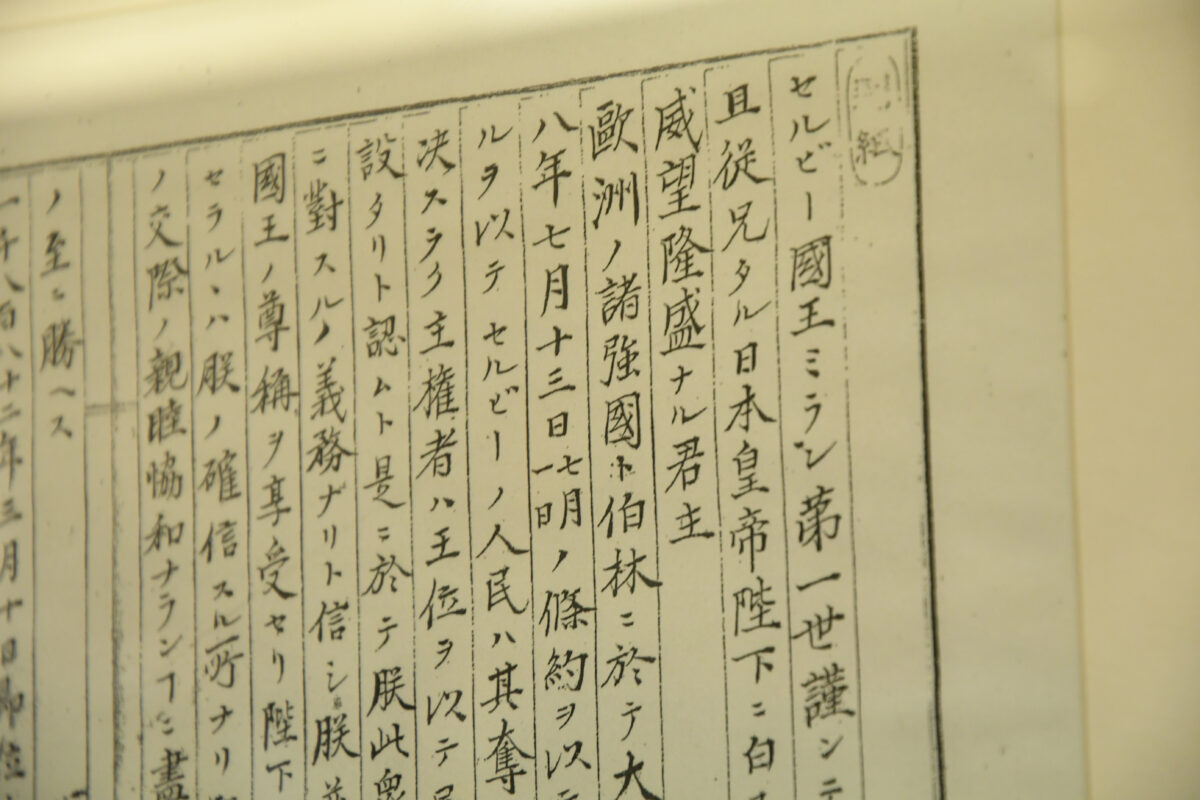 別紙
セルビー國王ミラン第一世謹ンテ
且従兄タル日本皇帝陛下ニ白ス
威望隆盛ナル君主
歐洲ノ諸強國ト伯林ニ於テ大
八年七月十三日七月一日ノ條約ヲ以テ
ルヲ以テセルビーノ人民ハ其奪
决スラク主権者ハ王位ヲ以テ
設タリト認ムト是ニ於テ朕此衆
ニ對スルノ義務ナリト信シ朕並
國王ノ尊稱ヲ享受セリ陛下
セラルヽハ朕ノ確信スル所ナリ
ノ交際ノ親睦恊和ナランヿニ盡
ノ至ニ勝ヘス
一千八百八十二年三月十日即位